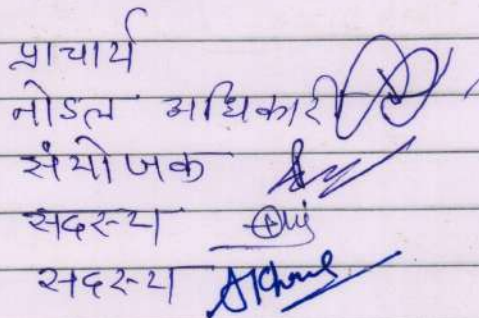 प्राचार्य
नोडल अधिकारी
संयोजक
सदस्य
सदस्य